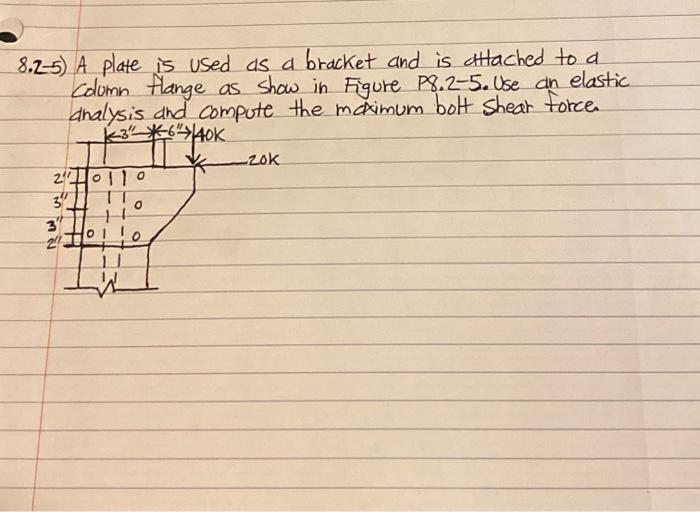 8.2-5) A plate is used as a bracket and is attached to a
Column flange as show in Figure P8.2-5. Use an elastic
analysis and compute the maximum bolt shear force.
3" 6" 40K
20K
2"
3"
3"
2"